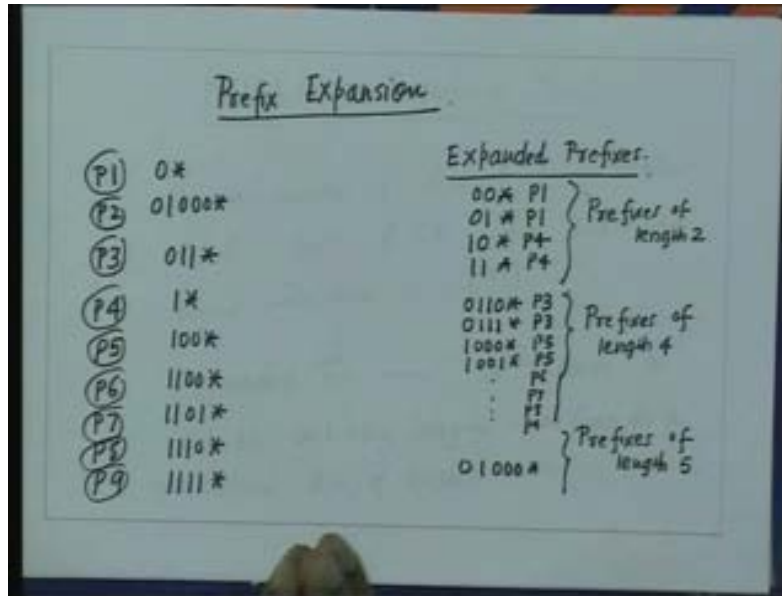 Prefix Expansion
P1 0*
P2 01000*
P3 011*
P4 1*
P5 100*
P6 1100*
P7 1101*
P8 1110*
P9 1111*
Expanded Prefixes.
00* P1
01* P1
10* P4
11* P4
Prefixes of
length 2
0110* P3
0111* P3
1000* P5
1001* P5
. P6
. P7
: P8
P9
Prefixes of
length 4
01000*
Prefixes of
length 5